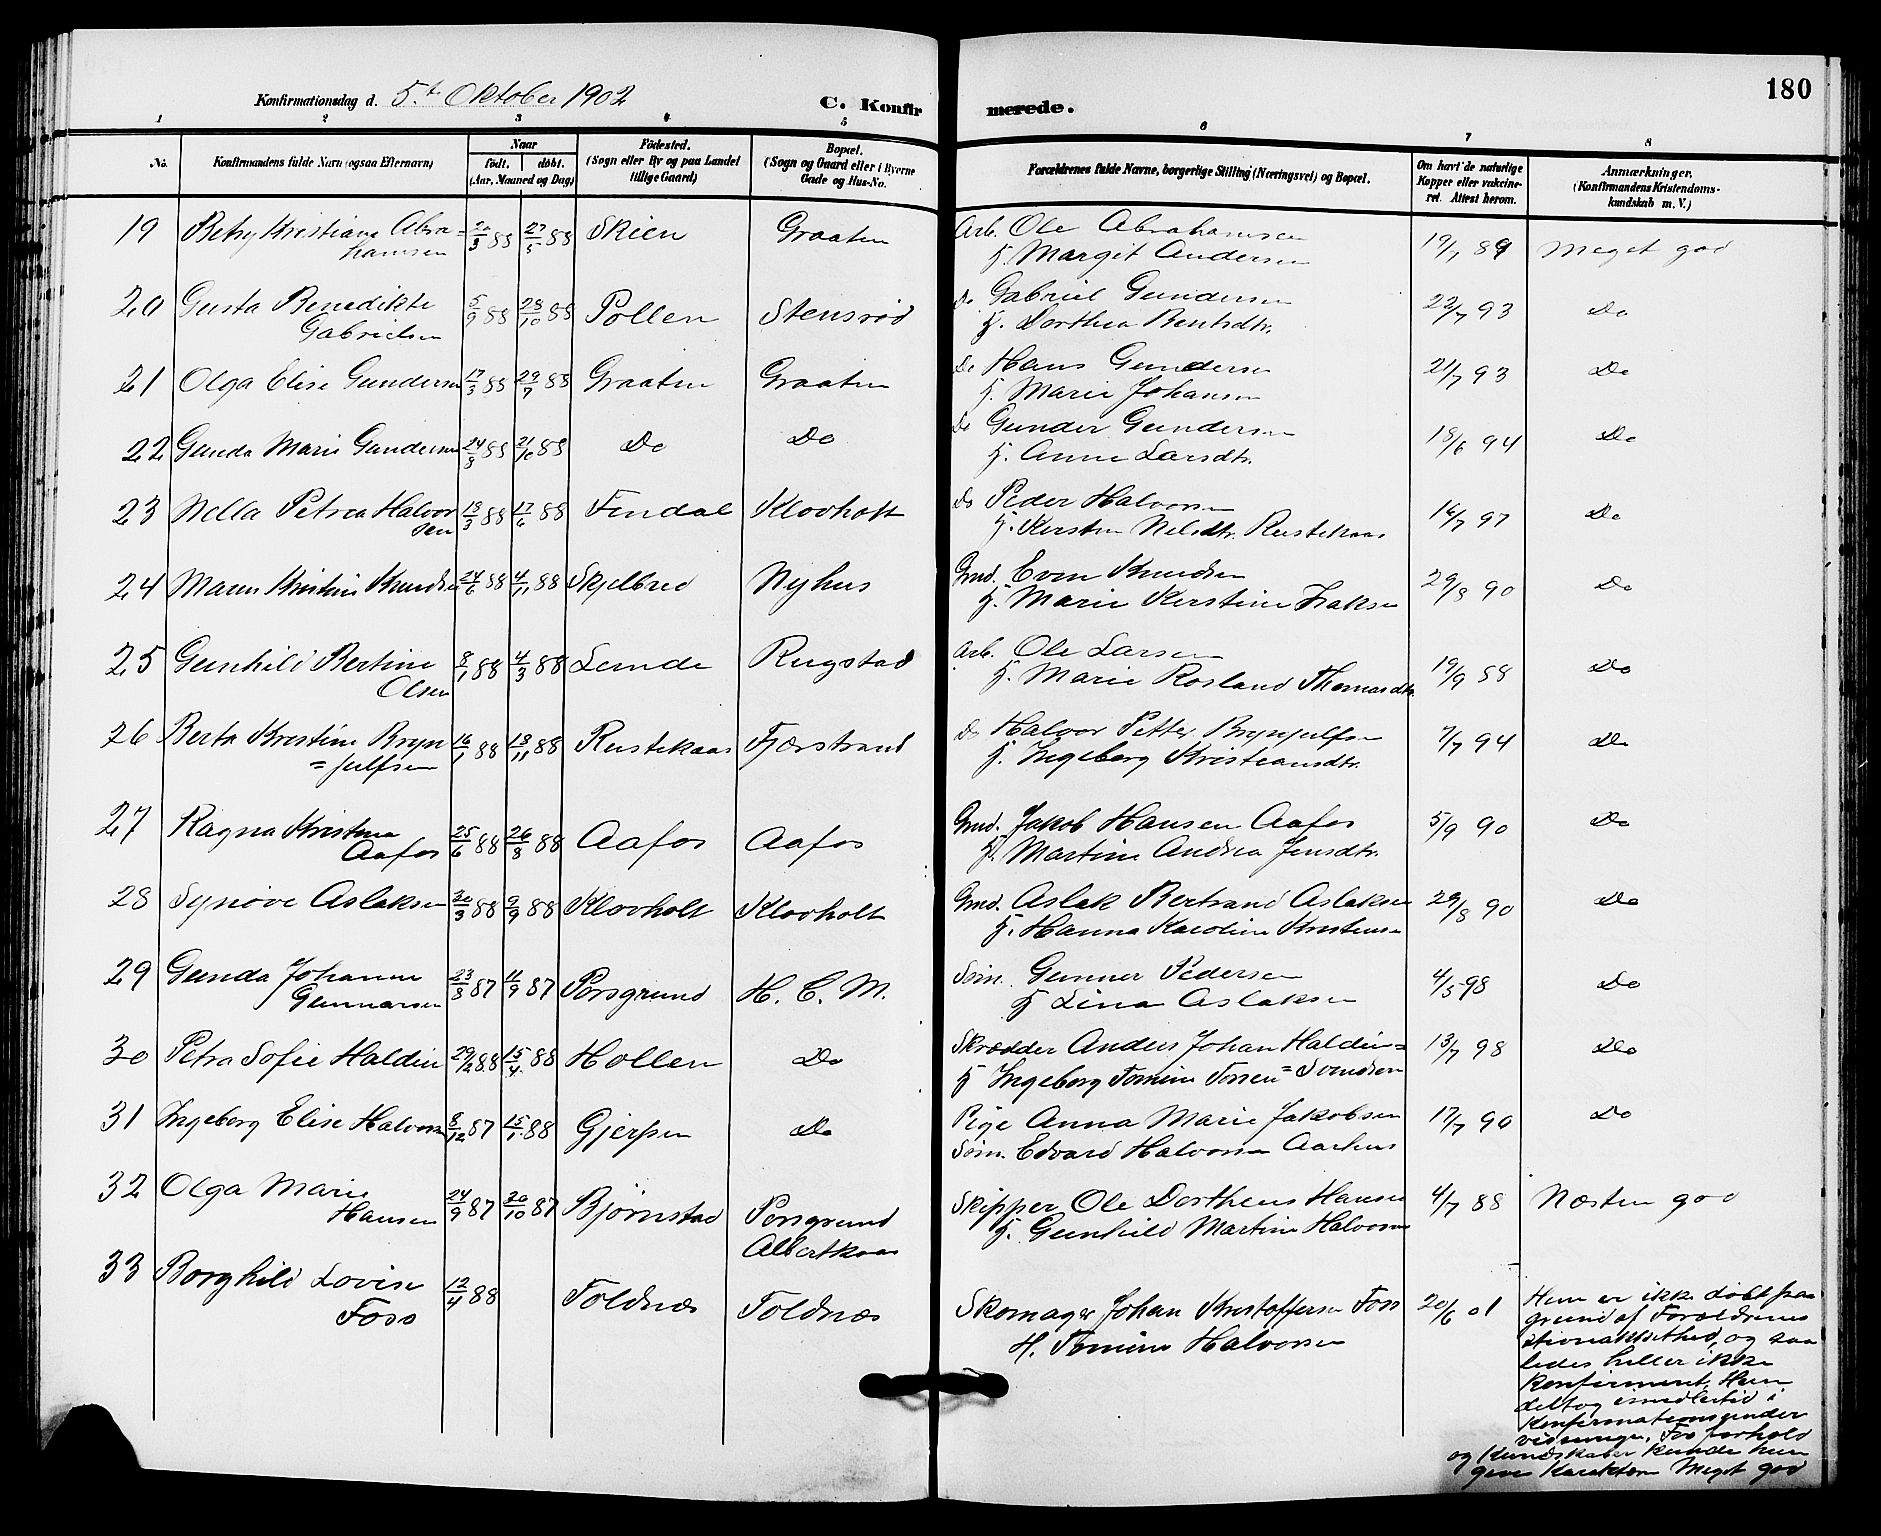 180
Konfirmationsdag d. 5.t Oktober 1902 C. Konfir merede.
1 2 3 4 5 6 7 8
No. Konfirmandens fulde Navn (ogsaa Efternavn) Naar født. døbt. (Aar, Maaned og Dag) Fødested. (Sogn eller By og paa Landet tillige Gaard) Bopæl. (Sogn og Gaard eller i Byerne Gade og Hus-No. Forældrenes fulde Navne, borgerlige Stilling (Næringsvei) og Bopæl. Om havt de naturlige Kopper eller vakcineret. Attest herom. Anmærkninger. (Konfirmandens Kristendomskundskab m. V.)
19 Betsy Kristiane Abra= 20/3 88 27/5 88 Skien Graaten Arb. Ole Abrahamsen 19/7 89 Meget god
hamsen Hj. Margit Andersen
20 Gusta Benedikte 5/9 88 28/10 88 Pollen Stensrød Do Gabriel Gundersen 22/7 93 Do
Gabrielsen Hj. Dorthea Bentsdtr.
21 Olga Elise Gundersen 17/3 88 29/7 88 Graaten Graaten Do Hans Gundersen 21/7 93 Do
Hj. Marie Johansen
22 Gunda Marie Gundersen 24/8 88 21/10 88 Do Do Do Gunder Gundersen 18/6 94 Do
Hj. Anne Larsdtr.
23 Nella Petrea Halvor 13/3 88 17/6 88 Findal Klovholt Do Peder Halvorsen 16/7 97 Do
sen Hj. Kersten Nilsdtr. Rustekaas
24 Maren Kristine Knudsen 24/6 88 4/11 88 Skjelbred Nyhus Grd. Even Knudsen 29/8 90 Do
Hj. Marie Kerstine Isaksen
25 Gunhild Bertine 8/1 88 4/3 88 Lunde Rugstad Arb. Ole Larsen 19/9 88 Do
Olsen Hj. Marie Rosland Thomasdtr.
26 Berta Kristine Bryn 16/1 88 18/11 88 Rustekaas Fjærstrand Do Halvor Petter Brynjulfsen 7/7 94 Do
=julfsen Hj. Ingeborg Kristiansdtr.
27 Ragna Kristine 25/6 88 26/8 88 Aafos Aafos Grd. Jakob Hansen Aafos 5/9 90 Do
Aafos Hj. Martine Andrea Jensdtr.
28 Synøve Aslaksen 30/3 88 9/9 88 Klovholt Klovholt Grd. Aslak Bertrand Aslaksen 29/8 90 Do
Hj. Hanna Karoline Kristensen
29 Gunda Johanne 23/8 87 11/9 87 Porsgrund H. C. M. Søm. Gunner Pedersen 4/5 98 Do
Gunnarsen Hj Lina Aslaksen
30 Petra Sofie Haldin 29/2 88 15/4 88 Hollen Do Skrædder Anders Johan Haldin= 13/7 98 Do
Hj Ingeborg Tomine Tossen=Svendsen
31 Ingeborg Elise Halvorsen 8/12 87 15/1 88 Gjerpen Do Pige Anna Marie Jakobsen 17/7 90 Do
Søm. Edvard Halvorsen Aarhus
32 Olga Marie 24/9 87 30/10 87 Bjørnstad Porsgrund Skipper Ole Dortheus Hansen 4/7 88 Næsten god
Hansen Albertkaas Hj. Gunhild Martine Halvorsen
33 Borghild Lovise 12/4 88 Toldnæs Toldnæs Skomager Johan Kristoffersen Foss 20/6 01 Hun er ikke døbt paa
Foss H. Tomine Halvorsen grund af Forældrenes
ationaliséthed, og saa
ledes heller ikke
konfirmeret. Hun
deltog imidlertid i
konfirmationsunder
visningen. For forhold
og Kundskaber kunde hun
given Karakteren Meget god